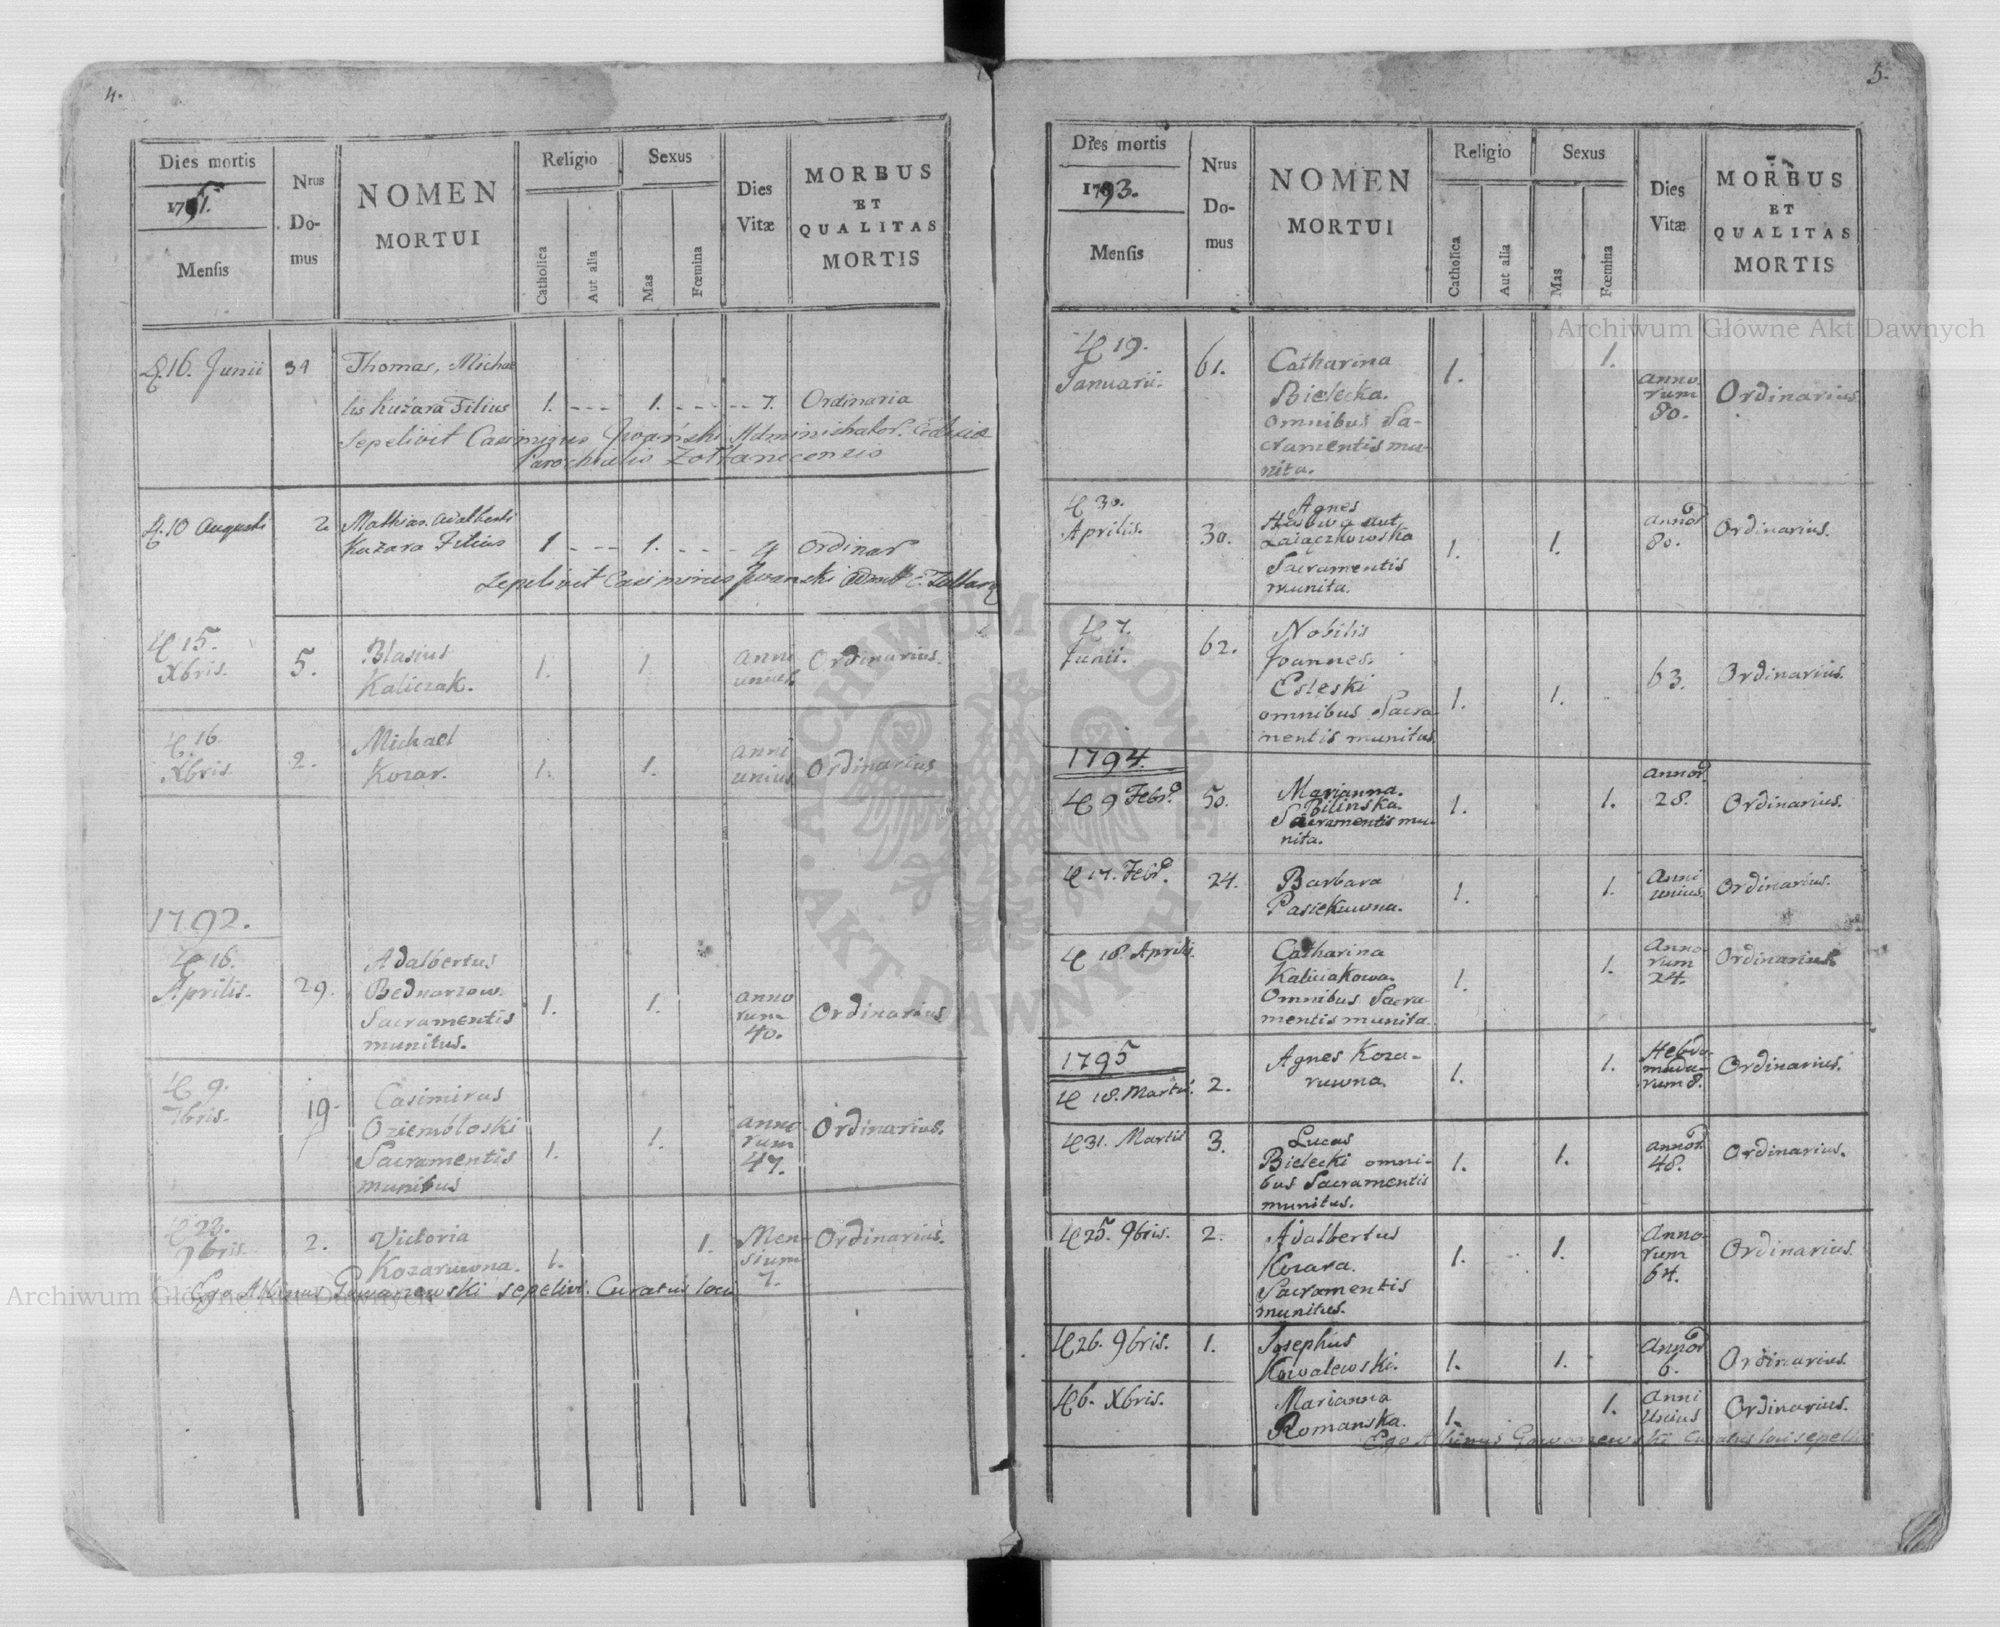 4.
Dies mortis
1791.
Mensis
Nrus Do-mus
NOMEN
MORTUI
Religio
Catholica
Aut alia
Sexus
Mas
Fœmina
Dies
Vitæ
MORBUS
ET
QUALITAS
MORTIS
16. Junii 31 Thomas, Micha
lis Kuźara Filius 1. --- 1. --- -- 7. Ordinaria
Sepelivit Casimirus Jwański Administrator Ecclesiæ
Parochialis Zołtanicensis
10 Augusti 2 Mathias Adalberti
Kuźara Filius 1 --- 1. --- 4 Ordinar
Sepelivit Casimirus Jwanski
15.
Xbris. 5. Blasius
Kaliczak. 1. 1. Anni
unius Ordinarius.
16
Xbris. 2. Michael
Kozar. 1. 1. Anni
unius Ordinarius
1792.
16.
Aprilis. 29. Adalbertus
Bednarzow.
Sacramentis
munitus. 1. 1. Anno
rum
40. Ordinarius
9.
7bris. 19. Casimirus
Oziembłoski
Sacramentis
munibus 1. 1. Anno-
rum
47. Ordinarius.
23.
9bris. 2. Victoria
Kozarowna. 1. 1. Men-
sium
7. Ordinarius.
Ego Albinus sepelivi. Curatus loci
5.
Dies mortis
1793.
Mensis
Nrus Do-mus
NOMEN
MORTUI
Religio
Catholica
Aut alia
Sexus
Mas
Fœmina
Dies
Vitæ
MORBUS
ET
QUALITAS
MORTIS
19.
Januarii. 61. Catharina
Bielecka.
omnibus Sa-
cramentis mu-
nita. 1. 1. Anno-
rum
80. Ordinarius
30.
Aprilis. 30. Agnes
aut
Zaiączkowska
Sacramentis
munita. 1. 1. Annor
80. Ordinarius.
7.
Junii. 62. Nobilis
Joannes.
Esleski
omnibus Sacra-
mentis munitus. 1. 1. 63. Ordinarius.
1794.
9 Febr. 50. Marianna.
Bilinska.
Sacramentis mu-
nita. 1. 1. Annor.
28. Ordinarius.
17. Febr. 24. Barbara
Pasiekuwna. 1. 1. Anni
unius. Ordinarius.
18. Aprilis. Catharina
Kaliciakowa.
Omnibus Sacra-
mentis munita. 1. 1. Anno-
rum
24. Ordinarius
1795
18. Martii. 2. Agnes Koza-
ruwna. 1. 1. Hebdo-
mada-
rum 8. Ordinarius.
31. Martii 3. Lucas
Bielecki omni-
bus Sacramentis
munitus. 1. 1. Annor.
48. Ordinarius.
25. 9bris. 2. Adalbertus
Kozara.
Sacramentis
munitus. 1. 1. Anno-
rum
64. Ordinarius.
26. 9bris. 1. Josephus
Kowalewski. 1. 1. Annor
6. Ordinarius.
6. Xbris. Marianna
Romanska. 1. 1. Anni
Unius Ordinarius.
Ego Albinus Gowonewski Curatus loci sepeli
Archiwum Główne Akt Dawnych
Archiwum Główne Akt Dawnych
ARCHIWUM GŁÓWNE · AKT DAWNYCH ·